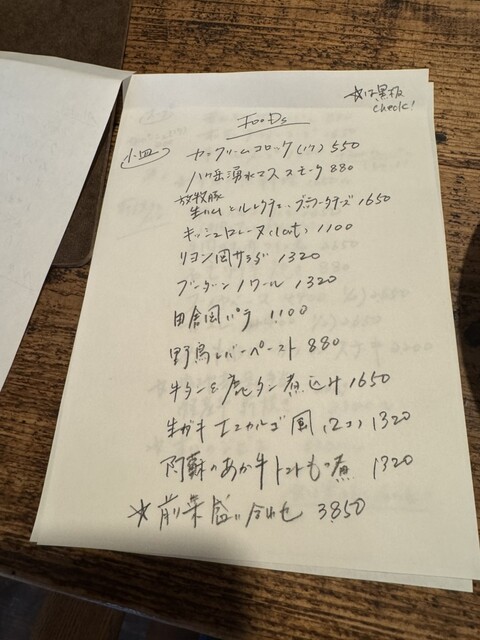 ☆は黒板
check!
FOODs
小皿
カニクリームコロッケ(1ケ) 550
八ヶ岳湧水マススモーク 880
放牧豚
生ハムとルレクチェ、ブラータチーズ 1650
キッシュロレーヌ(1cut) 1100
リヨン風サラダ 1320
ブーダンノワール 1320
田舎風パテ 1100
野鳥レバーペースト 880
牛タンと鹿タン煮込み 1650
生ガキエスカルゴ風(2コ) 1320
阿蘇のあか牛トマトもつ煮 1320
☆前菜盛り合わせ 3850